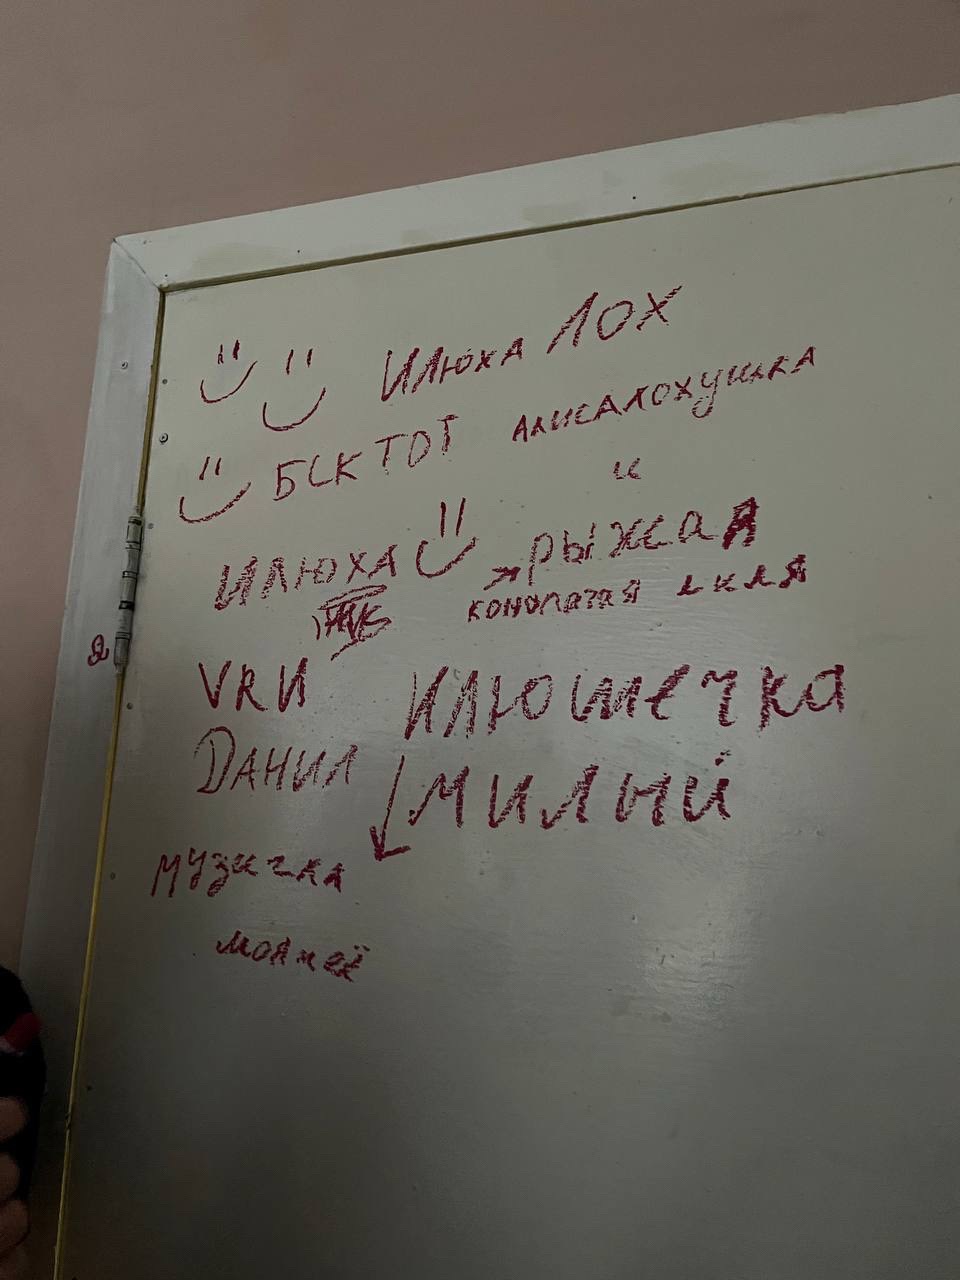 Илюха ЛОХ
БСК ТОТ
Алисалохушка
и
Илюха
рыжая
конопатая
Я
VRИ
Илюшечка
Данил
милый
музычка